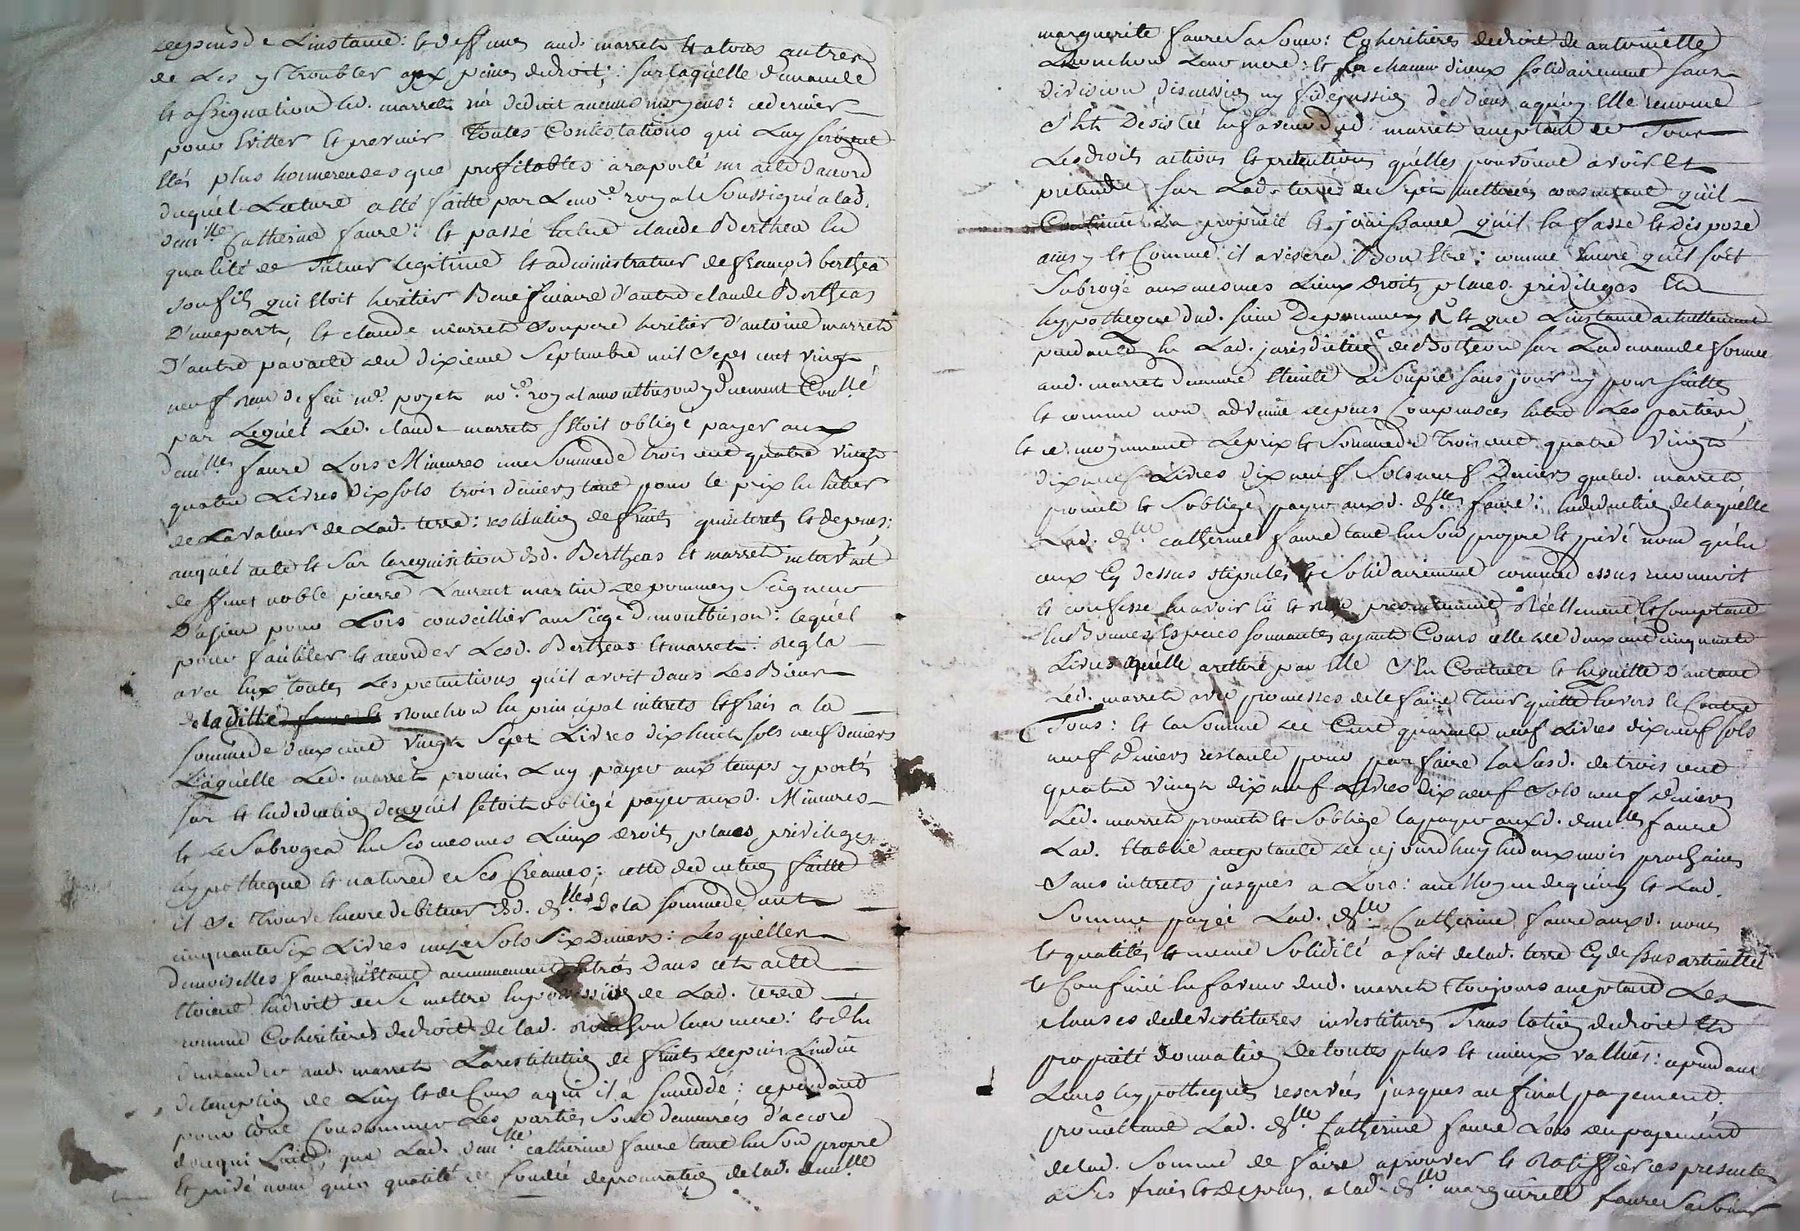 depens de Linstance: et deffences aud. marret et a tous autres
de Les y Troubler aux peines de droit; sur laquelle demande
et assignation led. marret n'a deduit aucuns moyens: ce dernier
pour Eviter et prevenir Toutes Contestations qui Luy
plus honnereuses que proffitables a raporté un acte d'accord
duquel Lecture a été faitte par Le no.re royal Soussigné a lad.
dem.lle Catherine faure: et passé Entre claude Berthea En
qualité de Tuteur Legitime et administrateur de françois berthea
son fils qui Etoit heritier Beneficiaire d'autre claude Bertheas
D'une part, et claude marret son pere heritier d'antoine marret
D'autre par acte du dixieme Septembre mil sept cent vingt
neuf Reçu de feu m.e poyet no.re royal a montbrison duement Con.llé
par Lequel Led. claude marret s'Etoit obligé payer aux
dem.lles faure Lors Mineures une Somme de trois cent quatre vingt
quatre Livres dix sols trois deniers tant pour le prix En Entier
de La valeur de Lad. terre: restitution de fruits qu'interets et depens:
auquel acte et sur la requisition desd. Bertheas et marret intervint
deffunt noble pierre Laurent martin de pommey Seigneur
D'asieu pour Lors conseillier au siege de montbrison: lequel
pour faciliter et accorder Lesd. Bertheas et marret: Regla
avec Eux toutes Les pretentions qu'il avoit dans Les Biens
de laditte Ronchon En principal interets et frais a la
somme de deux cent vingt sept Livres dix huit sols neuf deniers
Laquelle Led. marret promis Luy payer aux temps y portés
sur et En deduction de ce qu'il s'etoit obligé payer auxd. Mineures
et Le Subrogea En ses mesmes Lieux Droits places privileges
hypotheque et nature de ses Creances; cette deduction faitte
il se Trouve Encore debiteur desd. d.lles de la somme de cent
cinquante six Livres sols six Deniers: Lesquelles
Demoiselles faure n'Etant aucunement Entrées Dans cet acte
Etoient En droit de se mettre En possession de Lad. terre
comme Coheritieres de droit de lad. Ronchon Leur mere: et d'En
demander aud. marret La restitution de fruits depuis Linduë
detemption de Luy et de Ceux a qui il a succedé; cependant
pour tout consommer Les parties sont demeurées d'accord
de ce qui suit; que Lad. dem.lle catherine faure tant En son propre
Et privé nom qu'en qualité de fondée de procuration de lad. dem.lle
marguerite faure sa soeur: Coheritieres de droit de antoinette
Ronchon Leur mere: et chacune d'ieux solidairement sans
division discussion ny fidejussion de Biens a quoy Elle renonce
s'est Desistée En faveur dud. marret acceptant de Tous
Les droits actions et pretentions qu'elles pourroient avoir et
pretendre sur Lad. terre de sept mettérées consentant qu'il
Continue La proprieté et jouissance qu'il En fasse et dispose
ainsy et Comme il avisera Bon Etre: comme Encore qu'il soit
Subrogé aux mesmes Lieux Droits places privileges et
hypotheques dud. sieur Depommey: et que Linstance actuellement
pendante En Lad. jurisdiction de Botheon sur La demande formée
aud. marret demeure Eteinte assoupie sans jour ny pour suittes
et comme non advenue depens Compensés Entre Les parties
et ce moyennant Le prix et Somme de Trois cent quatre vingt
dix neuf Livres dix neuf sols neuf Deniers que led. marret
promet et s'oblige payer auxd. d.lles faure: En deduction de laquelle
Lad. d.lle catherine faure tant En son propre et privé nom qu'En
ceux Cy dessus stipulés et solidairement comme dessus reconnoit
et confesse En avoir Eu et Reçu presentement Réellement et Comptant
En Bonnes Especes sonnantes ayants Cours celle de deux cent cinquante
Livres qu'elle a retiré par Elle s'En Contente et En quitte d'autant
Led. marret avec promesses de le faire Tenir quitte Envers et Contre
Tous: et la somme de Cent quarante neuf Livres dix neuf sols
neuf Deniers restante pour par faire La susd. de trois cent
quatre vingt dix neuf Livres dix neuf Sols neuf Deniers
Led. marret promet et s'oblige La payer auxd. dem.lles faure
Lad. Etablie acceptante de cejourd'huy En deux mois prochains
Sans interets jusques a Lors: au Moyen de quoy et Lad.
Somme payée Lad. d.lle Catherine faure auxd. noms
et qualités et meme Solidité a fait de lad. terre Cy dessus articullée
et Confinée En faveur dud. marret toujours acceptant Les
clauses de devestitures investitures Translation de droit et
proprieté donnation de toutes plus et mieux vallües: cependant
Leurs hypotheques reservées jusques au final payement.
promettant Lad. d.lle Catherine faure Lors du payement
de lad. Somme de faire aprouver et Ratiffier ces presentes
a Ses frais et depens, a lad. d.lle marguerite faure Sa Soeur